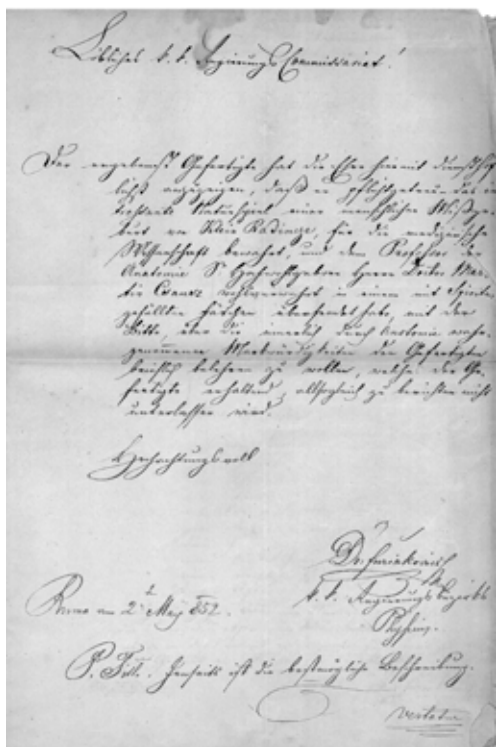 Löbliches k. k. Regierungs Commissariat!
Der ergebenst Gefertigte hat die Ehre hiermit dienst höf
lichst anzuzeigen, daß er pflichtgetreu das in
Naturspiel einer menschlichen Mißge
burt von Klein Kadinze, für die medizinische
Wissenschaft bewahrt, und dem Professor der
Anatomie Sr Hochwohlgeboren Herrn Doctor Mar-
tin Csausz wohlverwahrt in einem mit Spiritus
gefüllten Fäßchen übersendet habe, mit der
Bitte, über die innerlich durch Anatomie wahr-
genommenen Merkwürdigkeiten den Gefertigten
brieflich belehren zu wollen, welche der Ge-
fertigte erhaltend, allsogleich zu berichten nicht
unterlassen wird.
Hochachtungsvoll
k. k. Regierungs Bezirks
Physicus.
am 2t May 852.
P. Ttt. Jenseits ist die bestmögliche Beschreibung.